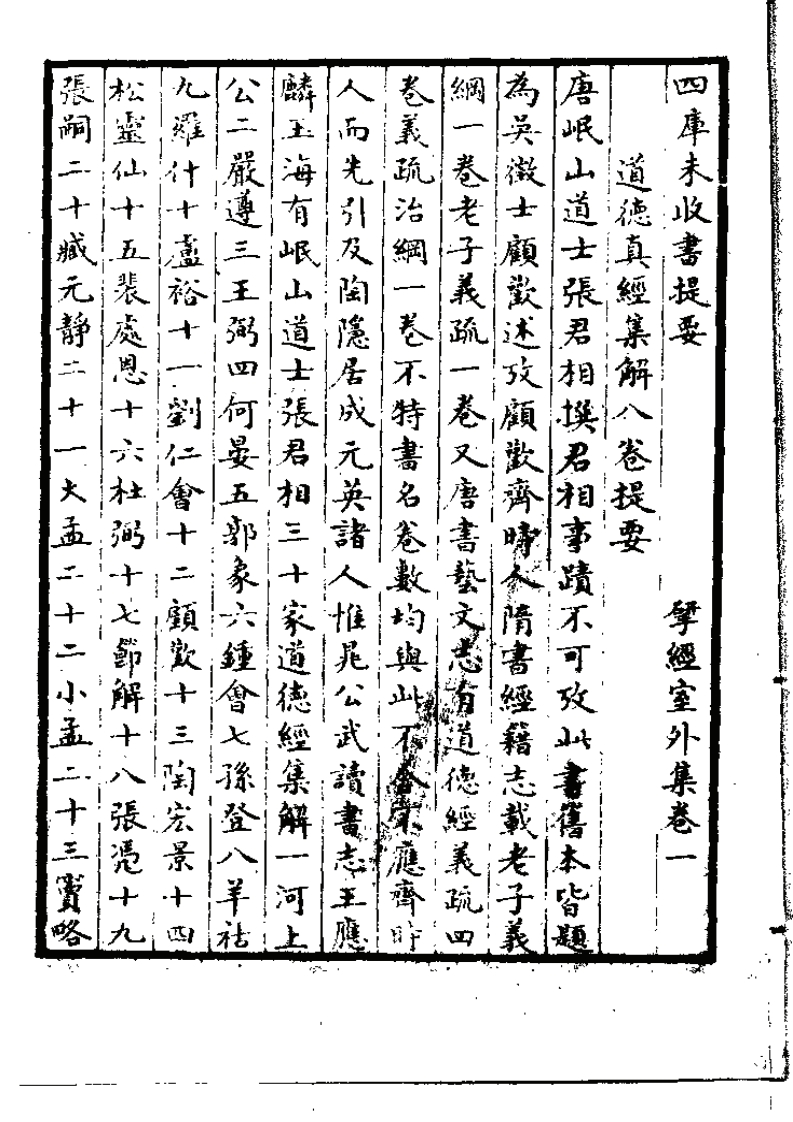 四庫未收書提要　　　　　　揅經室外集卷一
道德真經集解八卷提要
唐岷山道士張君相撰君相事蹟不可攷此書舊本皆題
為吳徵士顧歡述攷顧歡齊時人隋書經籍志載老子義
綱一卷老子義疏一卷又唐書藝文志有道德經義疏四
卷義疏治綱一卷不特書名卷數均與此不合不應齊時
人而先引及陶隱居成元英諸人惟晁公武讀書志王應
麟玉海有岷山道士張君相三十家道德經集解一河上
公二嚴遵三王弼四何晏五郭象六鍾會七孫登八羊祜
九羅什十盧裕十一劉仁會十二顧歡十三陶宏景十四
松靈仙十五裴處恩十六杜弼十七節解十八張憑十九
張嗣二十臧元靜二十一大孟二十二小孟二十三竇略